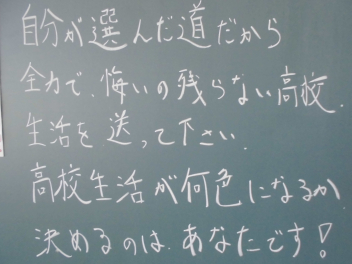 自分が選んだ道だから
全力で、悔いの残らない高校、
生活を送って下さい、
高校生活が何色になるか、
決めるのは、あなたです！